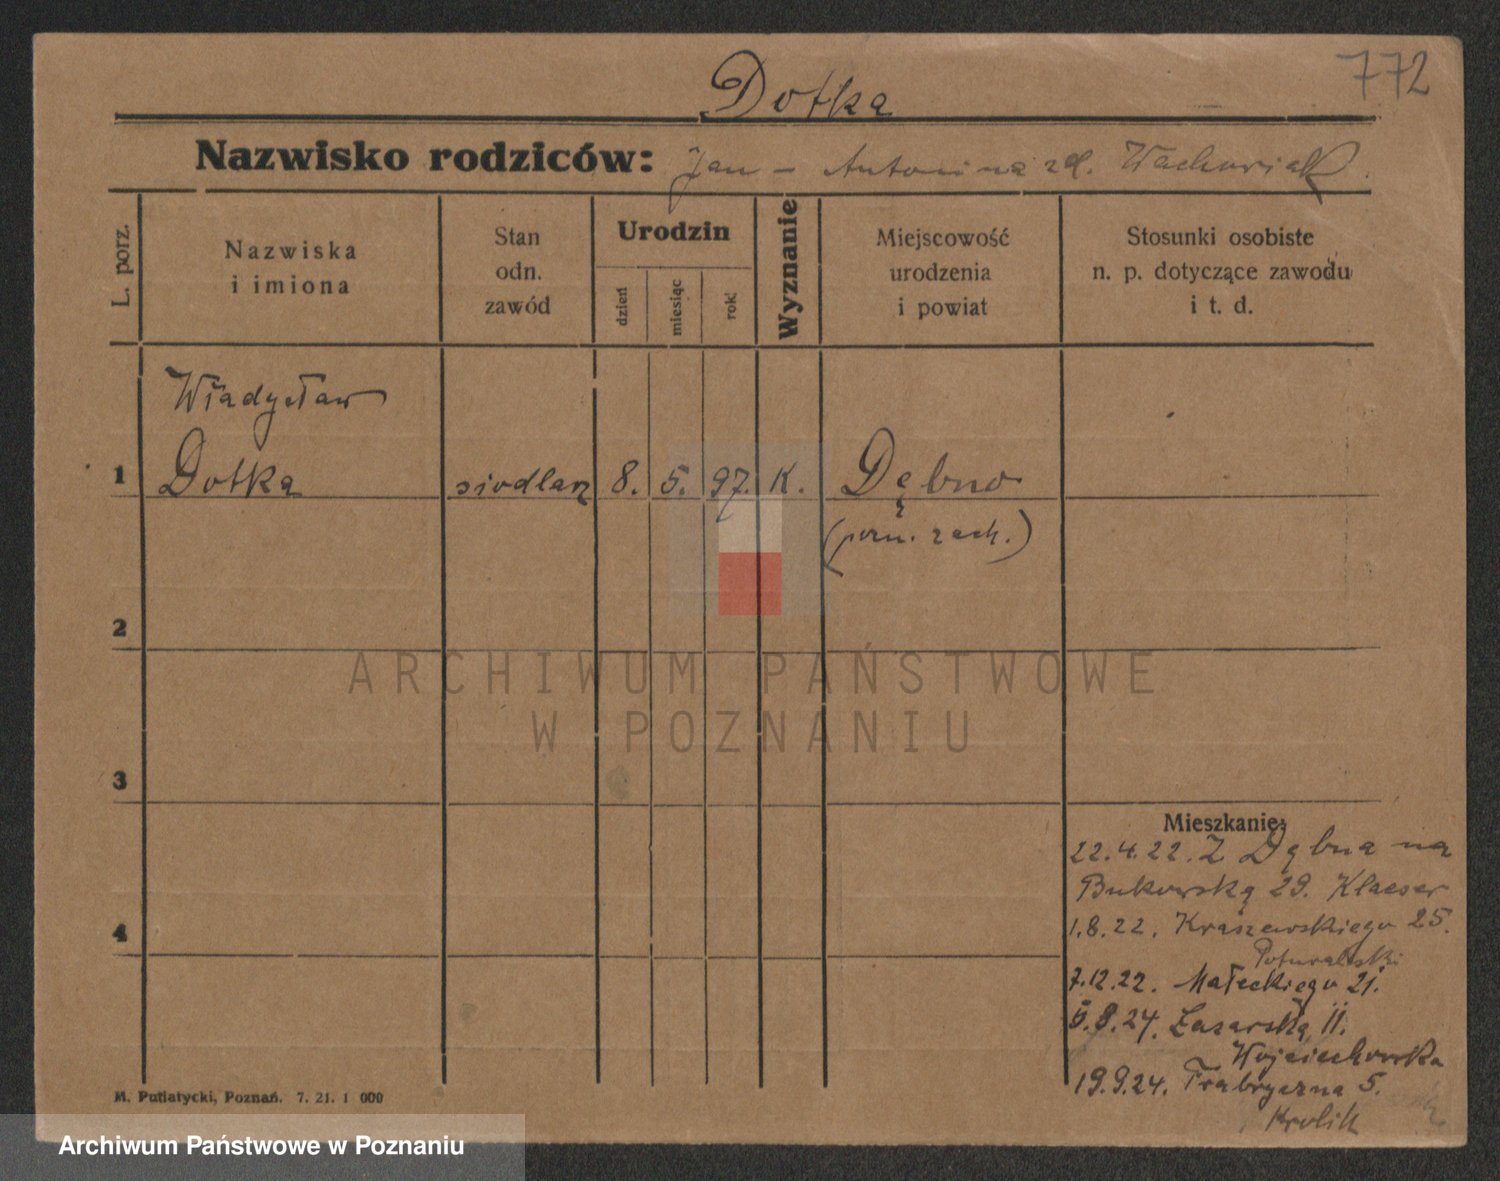 772
Dotka
Nazwisko rodziców: Jan – Antonina zd. Wachowiak.
L. porz.
Nazwiska
i imiona
Stan
odn.
zawód
Urodzin
dzień
miesiąc
rok
Wyznanie
Miejscowość
urodzenia
i powiat
Stosunki osobiste
n. p. dotyczące zawodu
i t. d.
Władysław
1 Dotka siodlarz 8. 5. 97. K. Dębno
(pozn. zach.)
2
3
4
Mieszkanie:
22.4.22. Z Dębna na
Bukowską 29. Klaeser
1.8.22. Kraszewskiego 25.
7.12.22. Małeckiego 21.
8.24. Łazarską 11.
Wojciechowska
19.9.24. Fabryczna 5.
Krolik
M. Putiatycki, Poznań. 7. 21. 1 000
ARCHIWUM PAŃSTWOWE
W POZNANIU
Archiwum Państwowe w Poznaniu